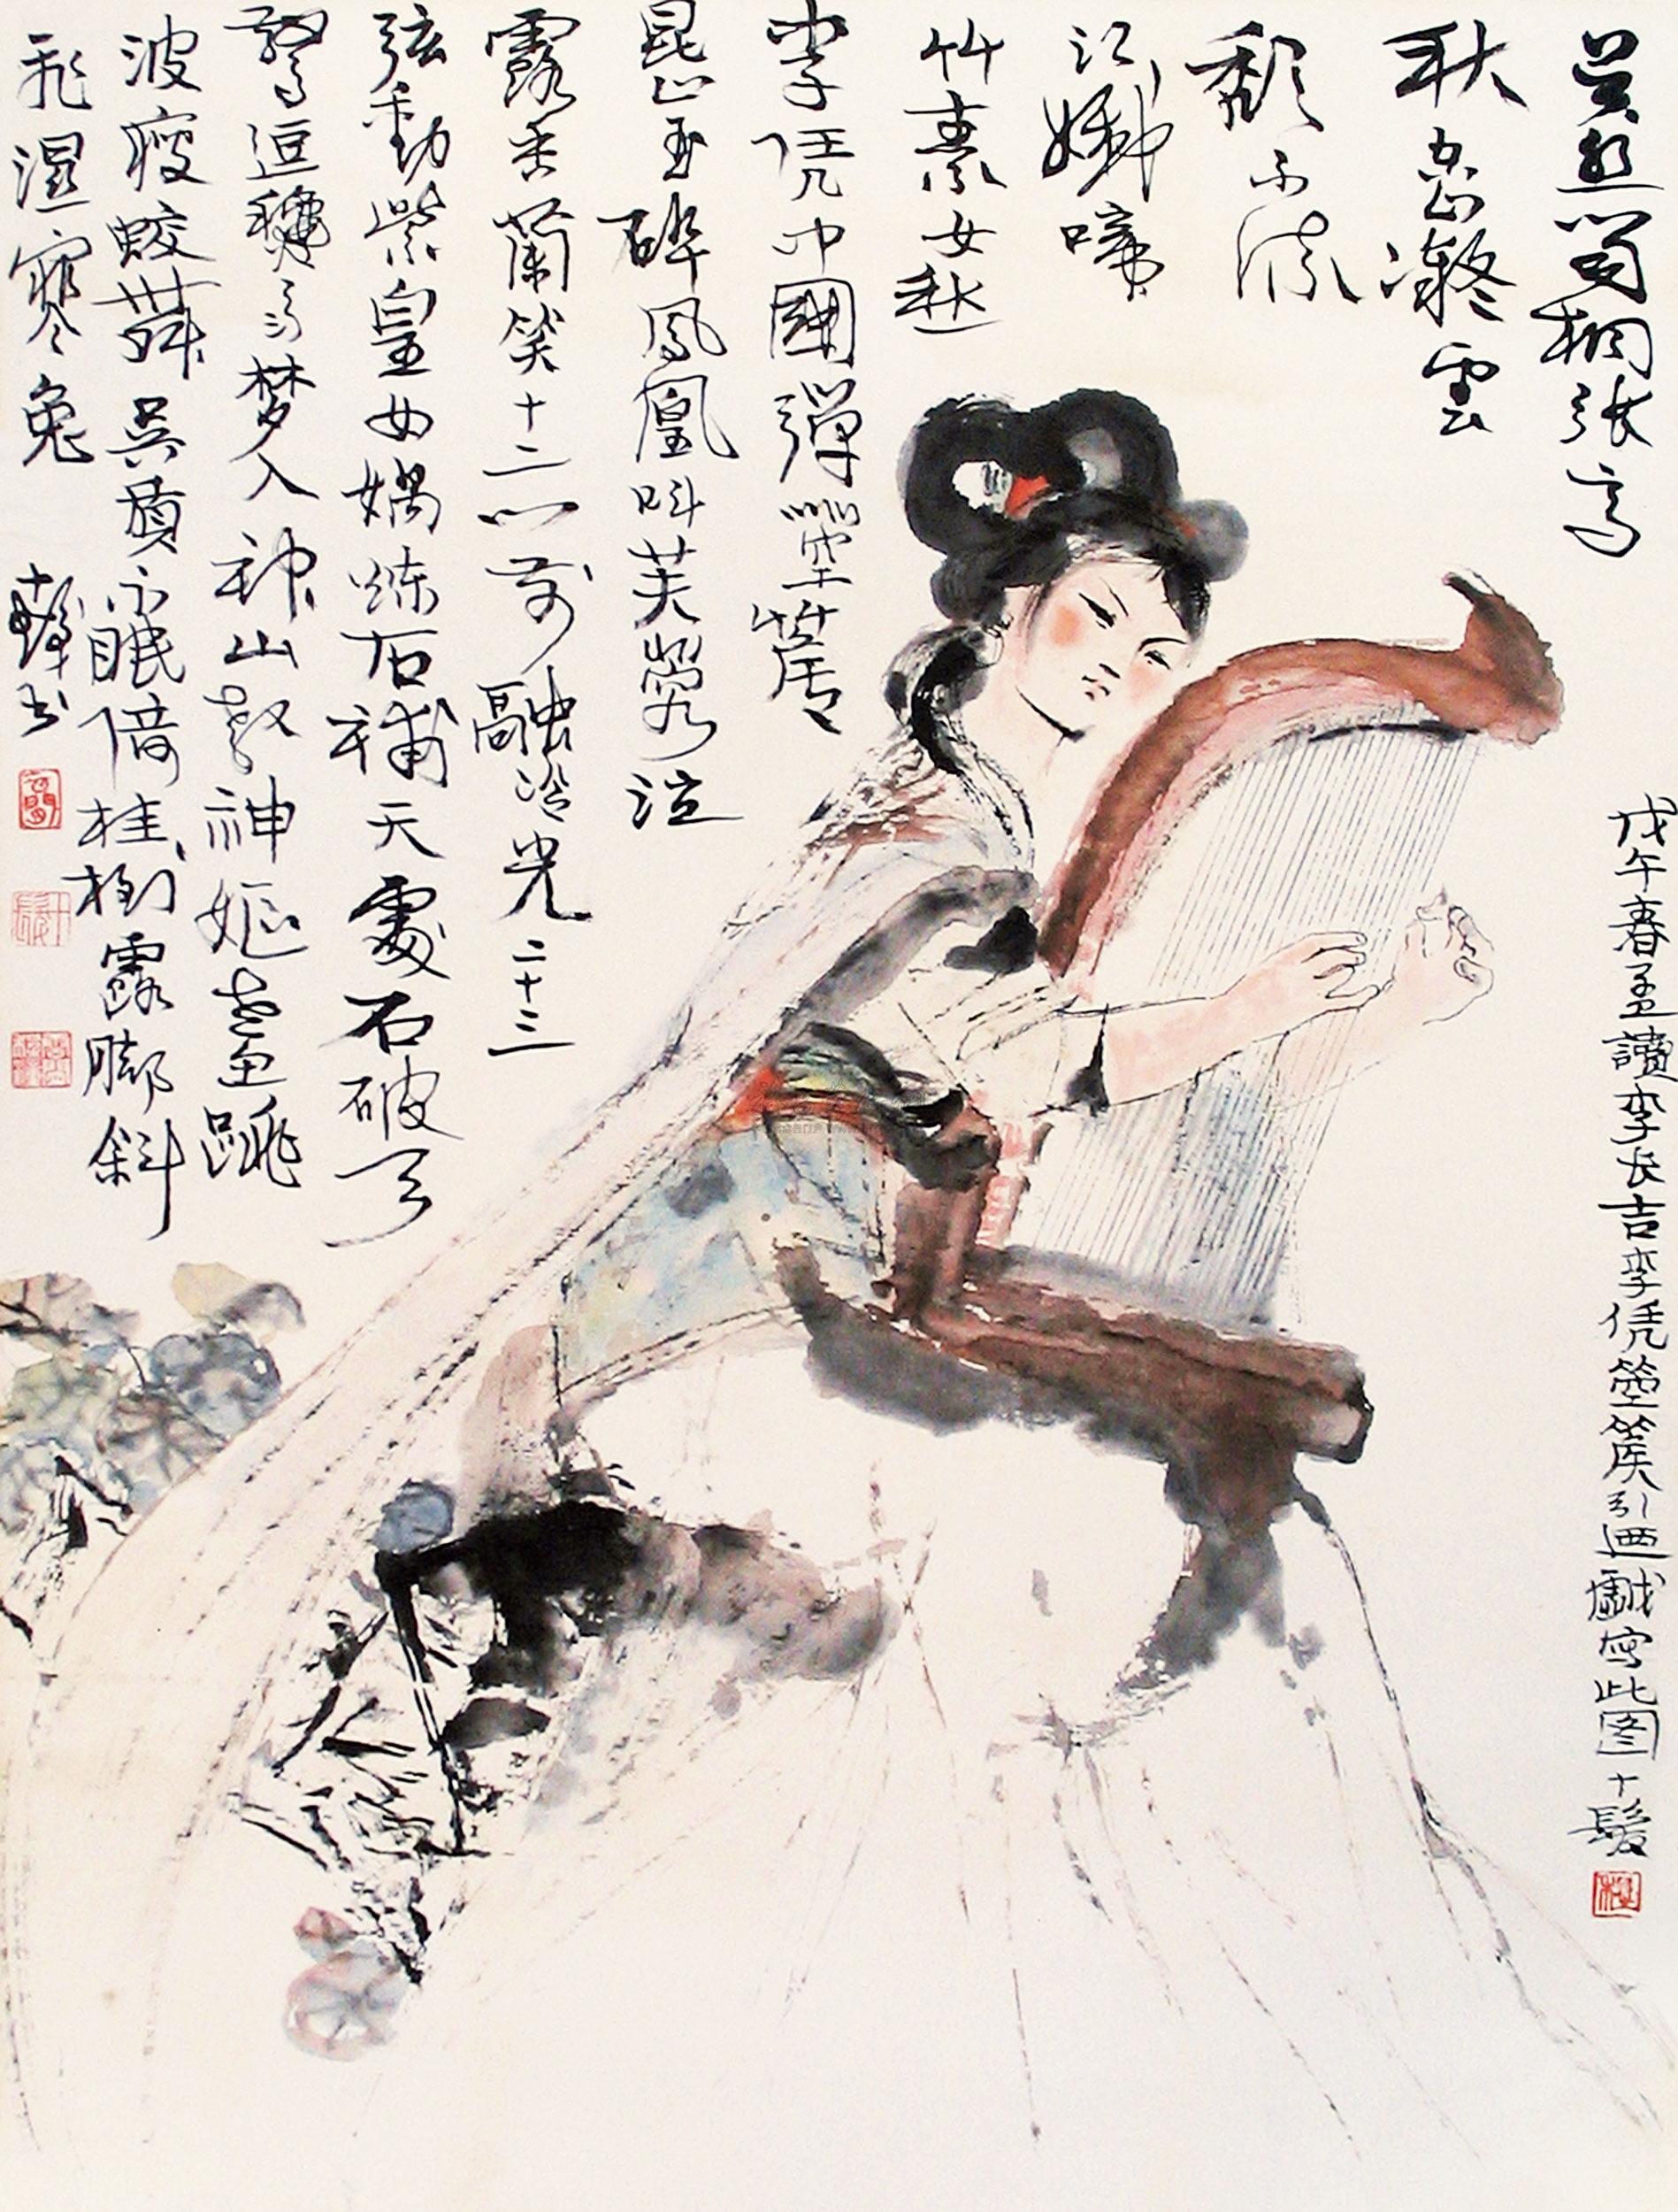 吴丝蜀桐张高
秋 空山凝雲
颓不流
江娥啼
竹素女愁
李凭中國彈箜篌
昆山玉碎鳳凰叫芙蓉泣
露香蘭笑十二门前融冷光二十三
弦動紫皇女媧炼石補天處石破天
驚逗龝雨梦入神山教神嫗老鱼跳
波瘦蛟舞吴質不眠倚桂樹露脚斜
飛濕寒兔
十髮书
戊午春孟讀李长吉李凭箜篌引迺戯写此图 十髮